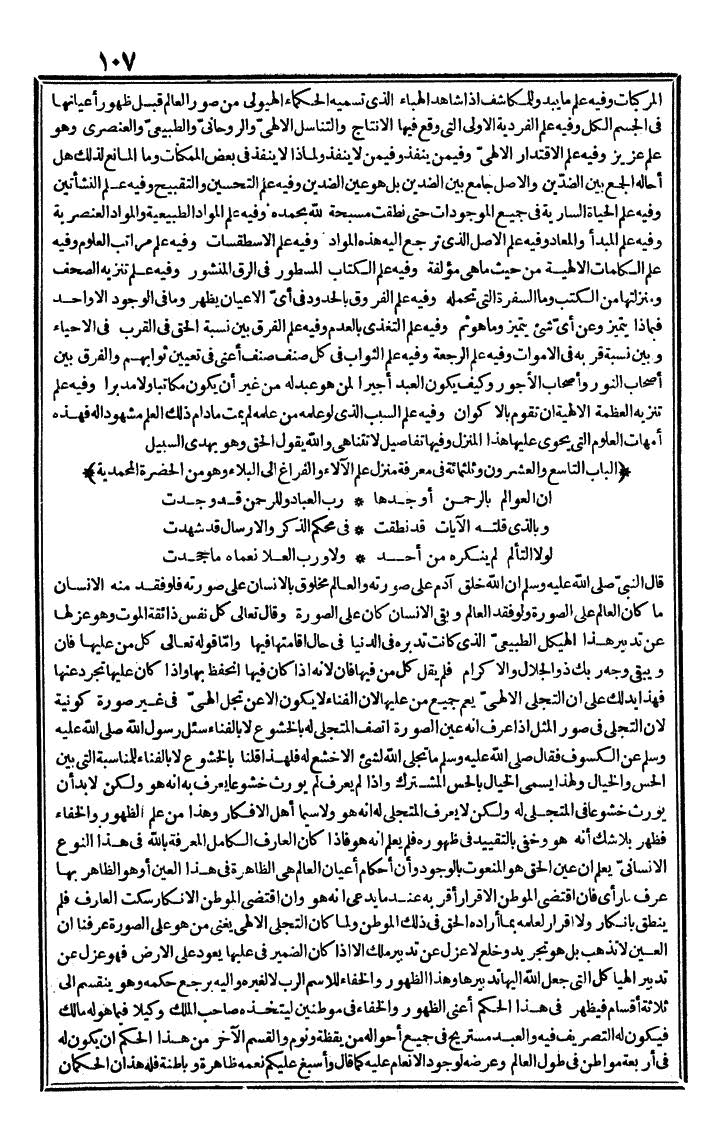 ١٠٧
المركبات وفيه علم ما يبدو للمكاشف اذا شاهد الهباء الذى تسميه الحكماء الهيولى من صور العالم قبل ظهور أعيانها
فى الجسم الكل وفيه علم الفردية الاولى التى وقع فيها الانتاج والتناسل الالهىّ والروحانىّ والطبيعىّ والعنصرى وهو
علم عزيز وفيه علم الاقتدار الالهىّ وفيمن ينفذ وفيمن لا ينفذ ولماذا لا ينفذ فى بعض الممكنات وما المانع لذلك هل
أحاله الجمع بين الضدّين والاصل جامع بين الضدين بل هو عين الضدين وفيه علم التحسين والتقبيح وفيه علم النشأتين
وفيه علم الحياة السارية فى جميع الموجودات حتى نطقت مسبحة لله بحمده وفيه علم المواد الطبيعية والمواد العنصرية
وفيه علم المبدأ والمعاد وفيه علم الاصل الذى ترجع اليه هذه المواد وفيه علم الاسطقسات وفيه علم مراتب العلوم وفيه
علم الكلمات الالهية من حيث ماهى مؤلفة وفيه علم الكتاب المسطور فى الرق المنشور وفيه علم تنزيه الصحف
ومنزلتها من الكتب وما السفرة التى تحمله وفيه علم الفروق بالحدود فى أىّ الاعيان يظهر وما فى الوجود الا واحد
فبماذا يتميز وعن أىّ شئ يتميز وما هو ثم وفيه علم التغذى بالعدم وفيه علم الفرق بين نسبة الحق فى القرب فى الاحياء
و بين نسبة قربه فى الاموات وفيه علم الرجعة وفيه علم الثواب فى كل صنف صنف أعنى فى تعيين ثوابهم والفرق بين
أصحاب النور وأصحاب الأجور وكيف يكون العبد أجيرا لمن هو عبد له من غير أن يكون مكاتبا ولا مدبرا وفيه علم
تنزيه العظمة الالهية ان تقوم بالاكوان وفيه علم السبب الذى لو علمه من علمه لم يمت مادام ذلك العلم مشهودا له فهذه
أمهات العلوم التى يحوى عليها هذا المنزل وفيها تفاصيل لا تتناهى والله يقول الحق وهو يهدى السبيل
﴿الباب التاسع والعشرون وثلثمائة فى معرفة منزل علم الآلاء والفراغ الى البلاء وهو من الحضرة المحمدية﴾
ان العوالم بالرحمن أوجدها * رب العباد وللرحمن قد وجدت
وبالذى قلته الآيات قد نطقت * فى محكم الذكر والارسال قد شهدت
لولا التألم لم ينكره من أحد * ولا ورب العلا نعماه ما جحدت
قال النبىّ صلى الله عليه وسلم ان الله خلق آدم على صورته والعالم مخلوق بالانسان على صورته فلو فقد منه الانسان
ما كان العالم على الصورة ولو فقد العالم و بقى الانسان كان على الصورة وقال تعالى كل نفس ذائقة الموت وهو عزلها
عن تدبير هذا الهيكل الطبيعىّ الذى كانت تدبره فى الدنيا فى حال اقامتها فيها وامّا قوله تعالى كل من عليها فان
و يبقى وجه ربك ذو الجلال والاكرام فلم يقل كل من فيها فان لانه اذا كان فيها انحفظ بها واذا كان عليها تجرد عنها
فهذا يدلك على ان التجلى الالهىّ يعم جميع من عليها لان الفناء لا يكون الا عن تجل الهىّ فى غير صورة كونية
لان التجلى فى صور المثل اذا عرف انه عين الصورة اتصف المتجلى له بالخشوع لا بالفناء سئل رسول الله صلى الله عليه
وسلم عن الكسوف فقال صلى الله عليه وسلم ما تجلى الله لشئ الا خشع له فلهذا قلنا بالخشوع لا بالفناء للمناسبة التى بين
الحس والخيال ولهذا يسمى الخيال بالحس المشترك واذا لم يعرف لم يورث خشوعا يعرف به انه هو ولكن لا بد أن
يورث خشوعا فى المتجلى له ولكن لا يعرف المتجلى له انه هو ولا سيما أهل الافكار وهذا من علم الظهور والخفاء
فظهر بلا شك أنه هو وخفى بالتقييد فى ظهوره فلم يعلم انه هو فاذا كان العارف الكامل المعرفة بالله فى هذا النوع
الانسانىّ يعلم ان عين الحق هو المنعوت بالوجود وأن أحكام أعيان العالم هى الظاهرة فى هذا العين أو هو الظاهر بها
عرف ما رأى فان اقتضى الموطن الاقرار أقر به عند ما يدعى انه هو وان اقتضى الموطن الانكار سكت العارف فلم
ينطق بانكار ولا اقرار لعلمه بما أراده الحق فى ذلك الموطن ولما كان التجلى الالهى يغنى من هو على الصورة عرفنا ان
العين لا تذهب بل هو تجريد وخلع لا عزل عن تدبير ملك الا اذا كان الضمير فى عليها يعود على الارض فهو عزل عن
تدبير الهياكل التى جعل الله اليها تدبيرها وهذا الظهور والخفاء للاسم الرب لا لغيره واليه يرجع حكمه وهو ينقسم الى
ثلاثة أقسام فيظهر فى هذا الحكم أعنى الظهور والخفاء فى موطنين ليتخذه صاحب الملك وكيلا فيما هو له مالك
فيكون له التصريف فيه والعبد مستريح فى جميع أحواله من يقظة ونوم والقسم الآخر من هذا الحكم ان يكون له
فى أربعة مواطن فى طول العالم وعرضه لوجود الانعام عليه كما قال وأسبغ عليكم نعمه ظاهرة و باطنة فله هذان الحكمان